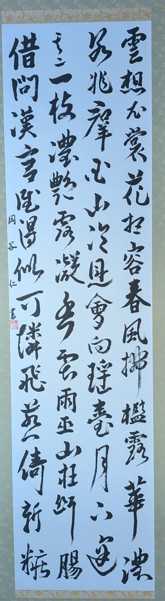 雲想衣裳花想容春風拂檻露華濃
若非羣玉山頭見會向瑤臺月下逢
其二一枝濃艷露凝香雲雨巫山枉斷腸
借問漢宮誰得似可憐飛燕倚新粧